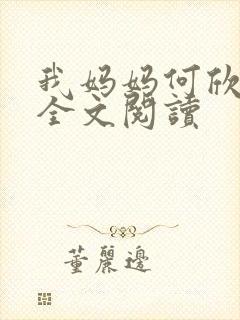 我妈妈何欣
全文閱讀
董麗邊